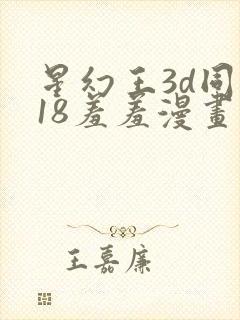 星幻王3d同
18羞羞漫畫
王嘉廉